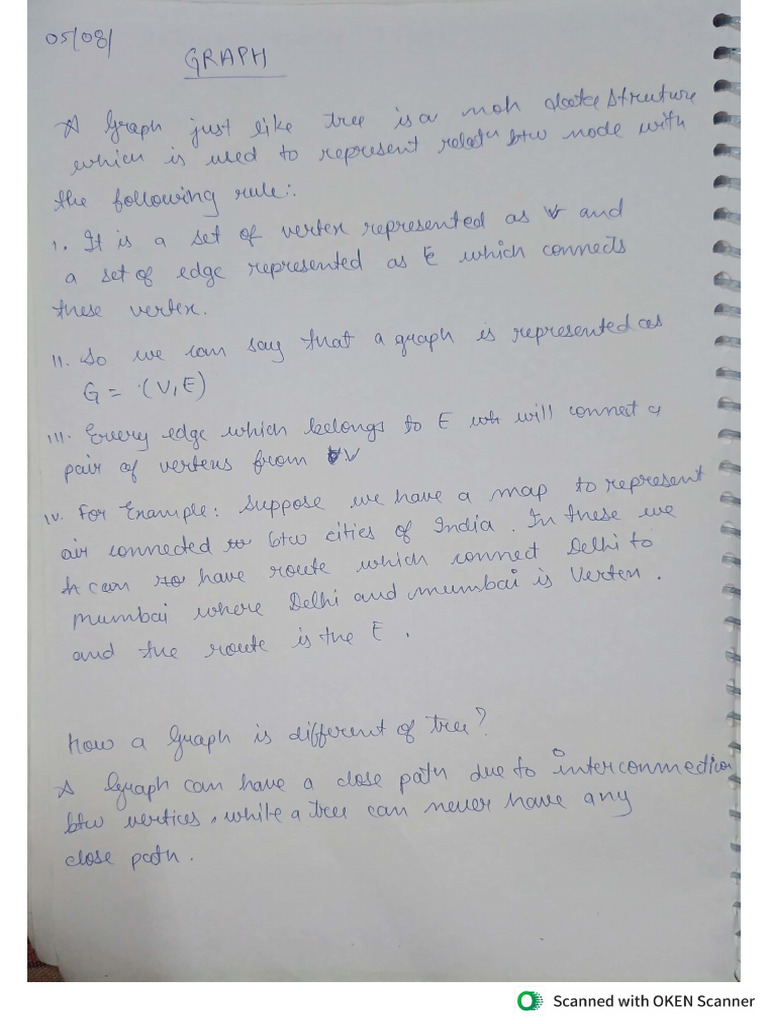 05/08/
GRAPH
A Graph just like tree is a data Struture
which is used to represent relatn btw node with
the following rule:.
1. It is a set of vertex represented as V and
a set of edge represented as E which connects
these vertex.
11. So we can say that a graph is represented as
G = (V, E)
111. Every edge which belongs to E will connect a
pair of vertexs from V
IV. For Example: Suppose we have a map to represent
air connected btw cities of India. In these we
can have route which connect Delhi to
Mumbai where Delhi and mumbai is Vertex.
and the route is the E.
How a Graph is different of tree?
A Graph can have a close path due to interconnection
btw vertices, while a tree can never have any
close path.
Scanned with OKEN Scanner